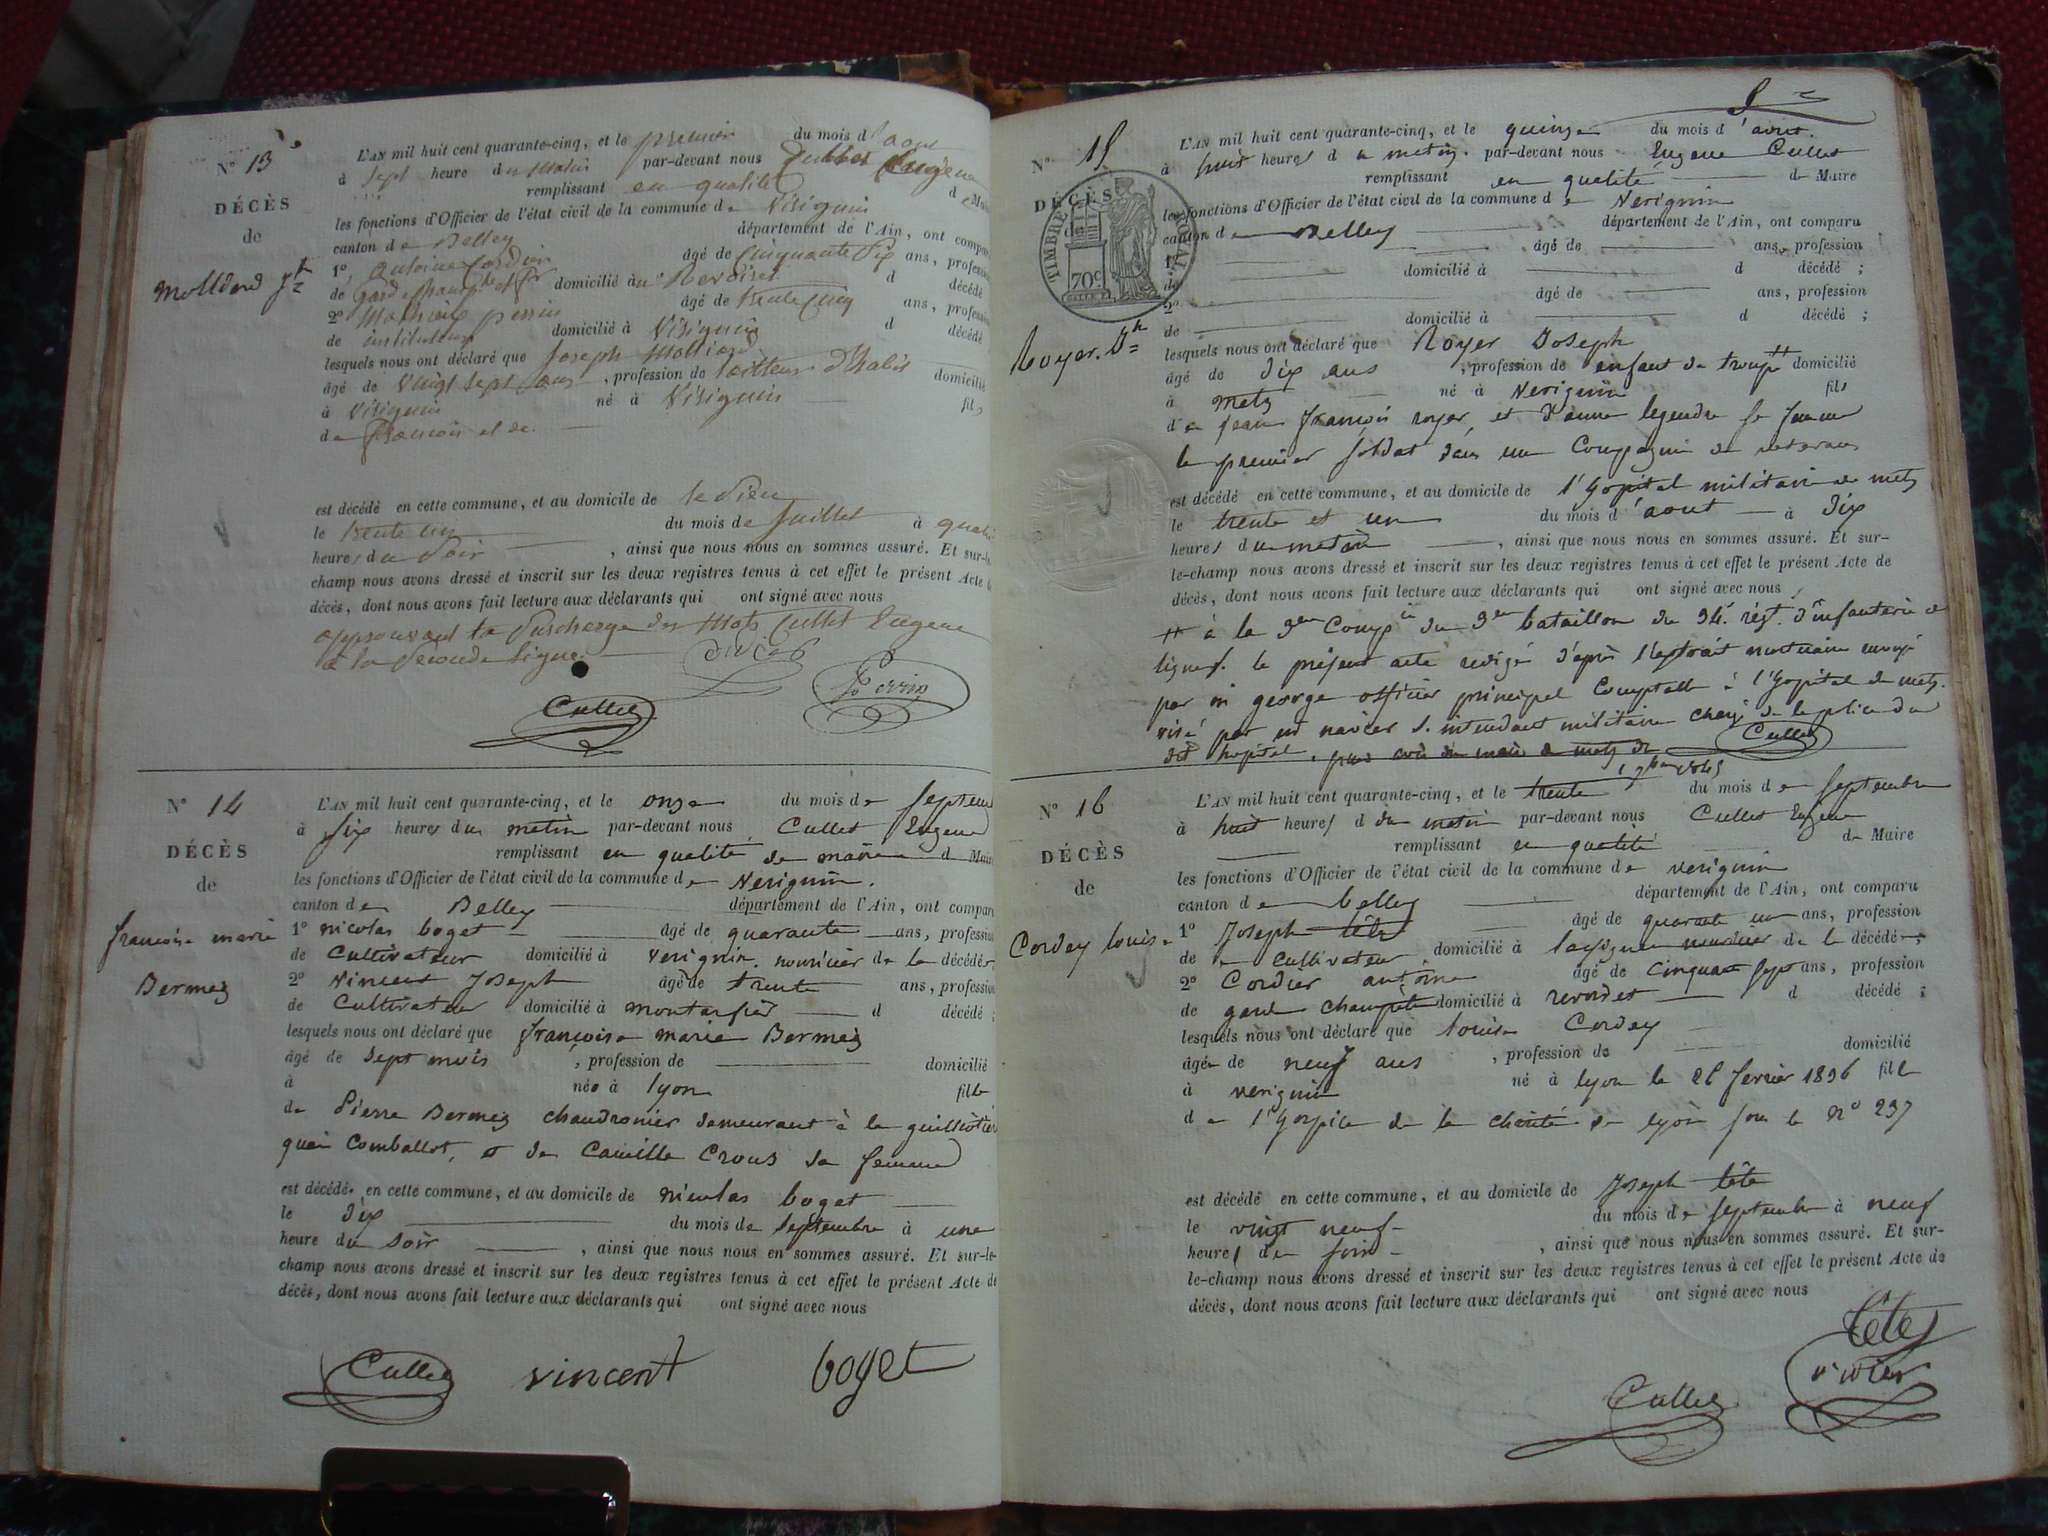 N° 13
DÉCÈS
de
Molliard Jh
L'AN mil huit cent quarante-cinq, et le premier du mois d'aout
à sept heure du Matin par-devant nous Cullet Eugene
remplissant en qualité de Maire
les fonctions d'Officier de l'état civil de la commune de Virignin
canton de Belley département de l'Ain, ont comparu
1° Antoine Cordier âgé de Cinquante Six ans, profession
de garde champêtre domicilié à décédé
2° perrin âgé de trente Cinq ans, profession
de instituteur domicilié à Virignin d décédé
lesquels nous ont déclaré que Joseph Molliard
âgé de Vingt sept ans, profession de tailleur d'habit domicilié
à Virignin né à Virignin fils
de François et de
est décédé en cette commune, et au domicile de
le trente un du mois de Juillet à quatre
heures du Soir, ainsi que nous nous en sommes assuré. Et sur-le-
champ nous avons dressé et inscrit sur les deux registres tenus à cet effet le présent Acte de
décès, dont nous avons fait lecture aux déclarants qui ont signé avec nous
approuvant la Surcharge des Mots Cullet Eugene
à la Seconde Ligne.
Perrin
Cullet
N° 14
DÉCÈS
de
françoise marie
Bermez
L'AN mil huit cent quarante-cinq, et le onze du mois de Septembre
à Six heures du matin par-devant nous Cullet Eugene
remplissant en qualité de maire d Maire
les fonctions d'Officier de l'état civil de la commune de Virignin.
canton de Belley département de l'Ain, ont comparu
1° nicolas boget âgé de quarante ans, profession
de Cultivateur domicilié à Virignin. nouricier de la décédée
2° Vincent Joseph âgé de trente ans, profession
de Cultivateur domicilié à montarfier d décédé ;
lesquels nous ont déclaré que françoise marie Bermez
âgé de sept mois, profession de domicilié
à née à lyon fille
de Pierre Bermez chaudronier demeurant à la guillotière
quai Comballot, et de Camille Crous sa femme
est décédée en cette commune, et au domicile de nicolas boget
le dix du mois de septembre à une
heure du soir, ainsi que nous nous en sommes assuré. Et sur-le-
champ nous avons dressé et inscrit sur les deux registres tenus à cet effet le présent Acte de
décès, dont nous avons fait lecture aux déclarants qui ont signé avec nous
Cullet vincent boget
N° 15
DÉCÈS
de
TIMBRE ROYAL
70c
Royer. Jh
L'AN mil huit cent quarante-cinq, et le quinze du mois d'aout.
à huit heures du matin. par-devant nous Eugene Cullet
remplissant en qualité de Maire
les fonctions d'Officier de l'état civil de la commune de Virignin
canton de Belley département de l'Ain, ont comparu
1° âgé de ans, profession
de domicilié à d décédé ;
2° âgé de ans, profession
de domicilié à d décédé ;
lesquels nous ont déclaré que Royer Joseph
âgé de dix ans, profession de enfant de troupe # domicilié
à metz né à Virignin fils
de jean françois royer, et d'anne legendre sa femme
le premier soldat dans une Compagnie de veterans
est décédé en cette commune, et au domicile de l'hopital militaire de metz
le trente et un du mois d'aout à dix
heures du matin, ainsi que nous nous en sommes assuré. Et sur-
le-champ nous avons dressé et inscrit sur les deux registres tenus à cet effet le présent Acte de
décès, dont nous avons fait lecture aux déclarants qui ont signé avec nous
# à la 3eme Compie du 3eme bataillon du 34e régt. d'infanterie de
ligne. le present acte redigé d'après l'extrait mortuaire envoyé
par m george officier principal Comptable à l'hopital de metz.
visé par m S. intendant militaire chargé de la police du
dit hopital.
Cullet
N° 16
DÉCÈS
de
Cordey louise
L'AN mil huit cent quarante-cinq, et le trente du mois de Septembre
à huit heures d du matin par-devant nous Cullet Eugene
remplissant en qualité de Maire
les fonctions d'Officier de l'état civil de la commune de virignin
canton de belley département de l'Ain, ont comparu
1° Joseph tête âgé de quarante un ans, profession
de cultivateur, domicilié à nouricier de la décédée ;
2° Cordier antoine âgé de cinquante sept ans, profession
de garde champêtre domicilié à d décédé ;
lesquels nous ont déclaré que louise Cordey
âgée de neuf ans, profession de domicilié
à virignin né à lyon le 26 fevrier 1836 fille
de l'hospice de la charité de lyon sous le n° 237
est décédé en cette commune, et au domicile de Joseph tête
le vingt neuf du mois de septembre à neuf
heures du soir, ainsi que nous nous en sommes assuré. Et sur-
le-champ nous avons dressé et inscrit sur les deux registres tenus à cet effet le présent Acte de
décès, dont nous avons fait lecture aux déclarants qui ont signé avec nous
Cullet